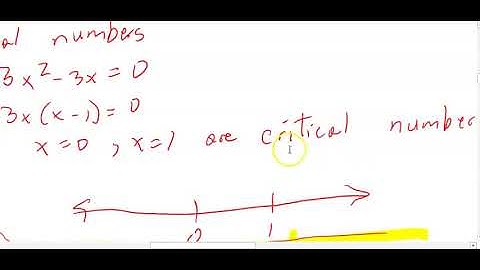 al numbers
3x²-3x=0
3x(x-1)=0
x=0, x=1 are critical number
0 1